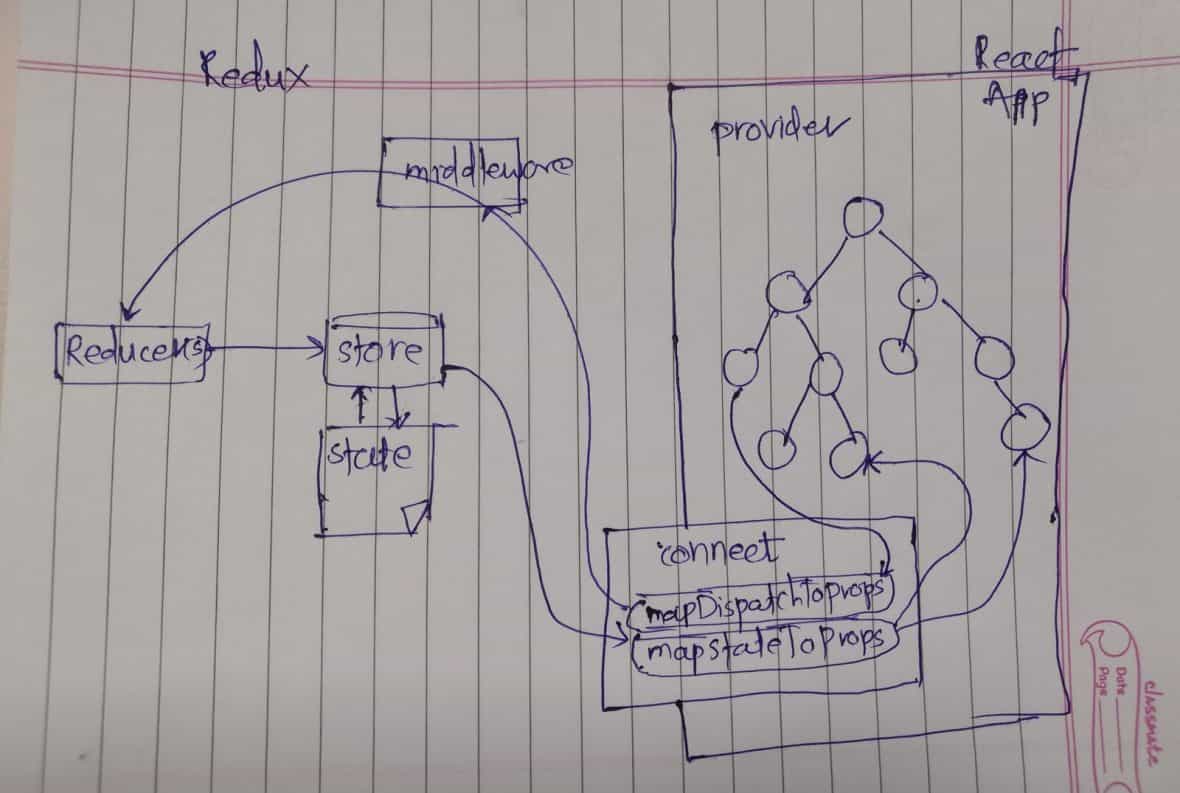 Redux
React
App
provider
middleware
Reducers
store
state
connect
mapDispatchToprops
mapstateToProps
classmate
Date
Page